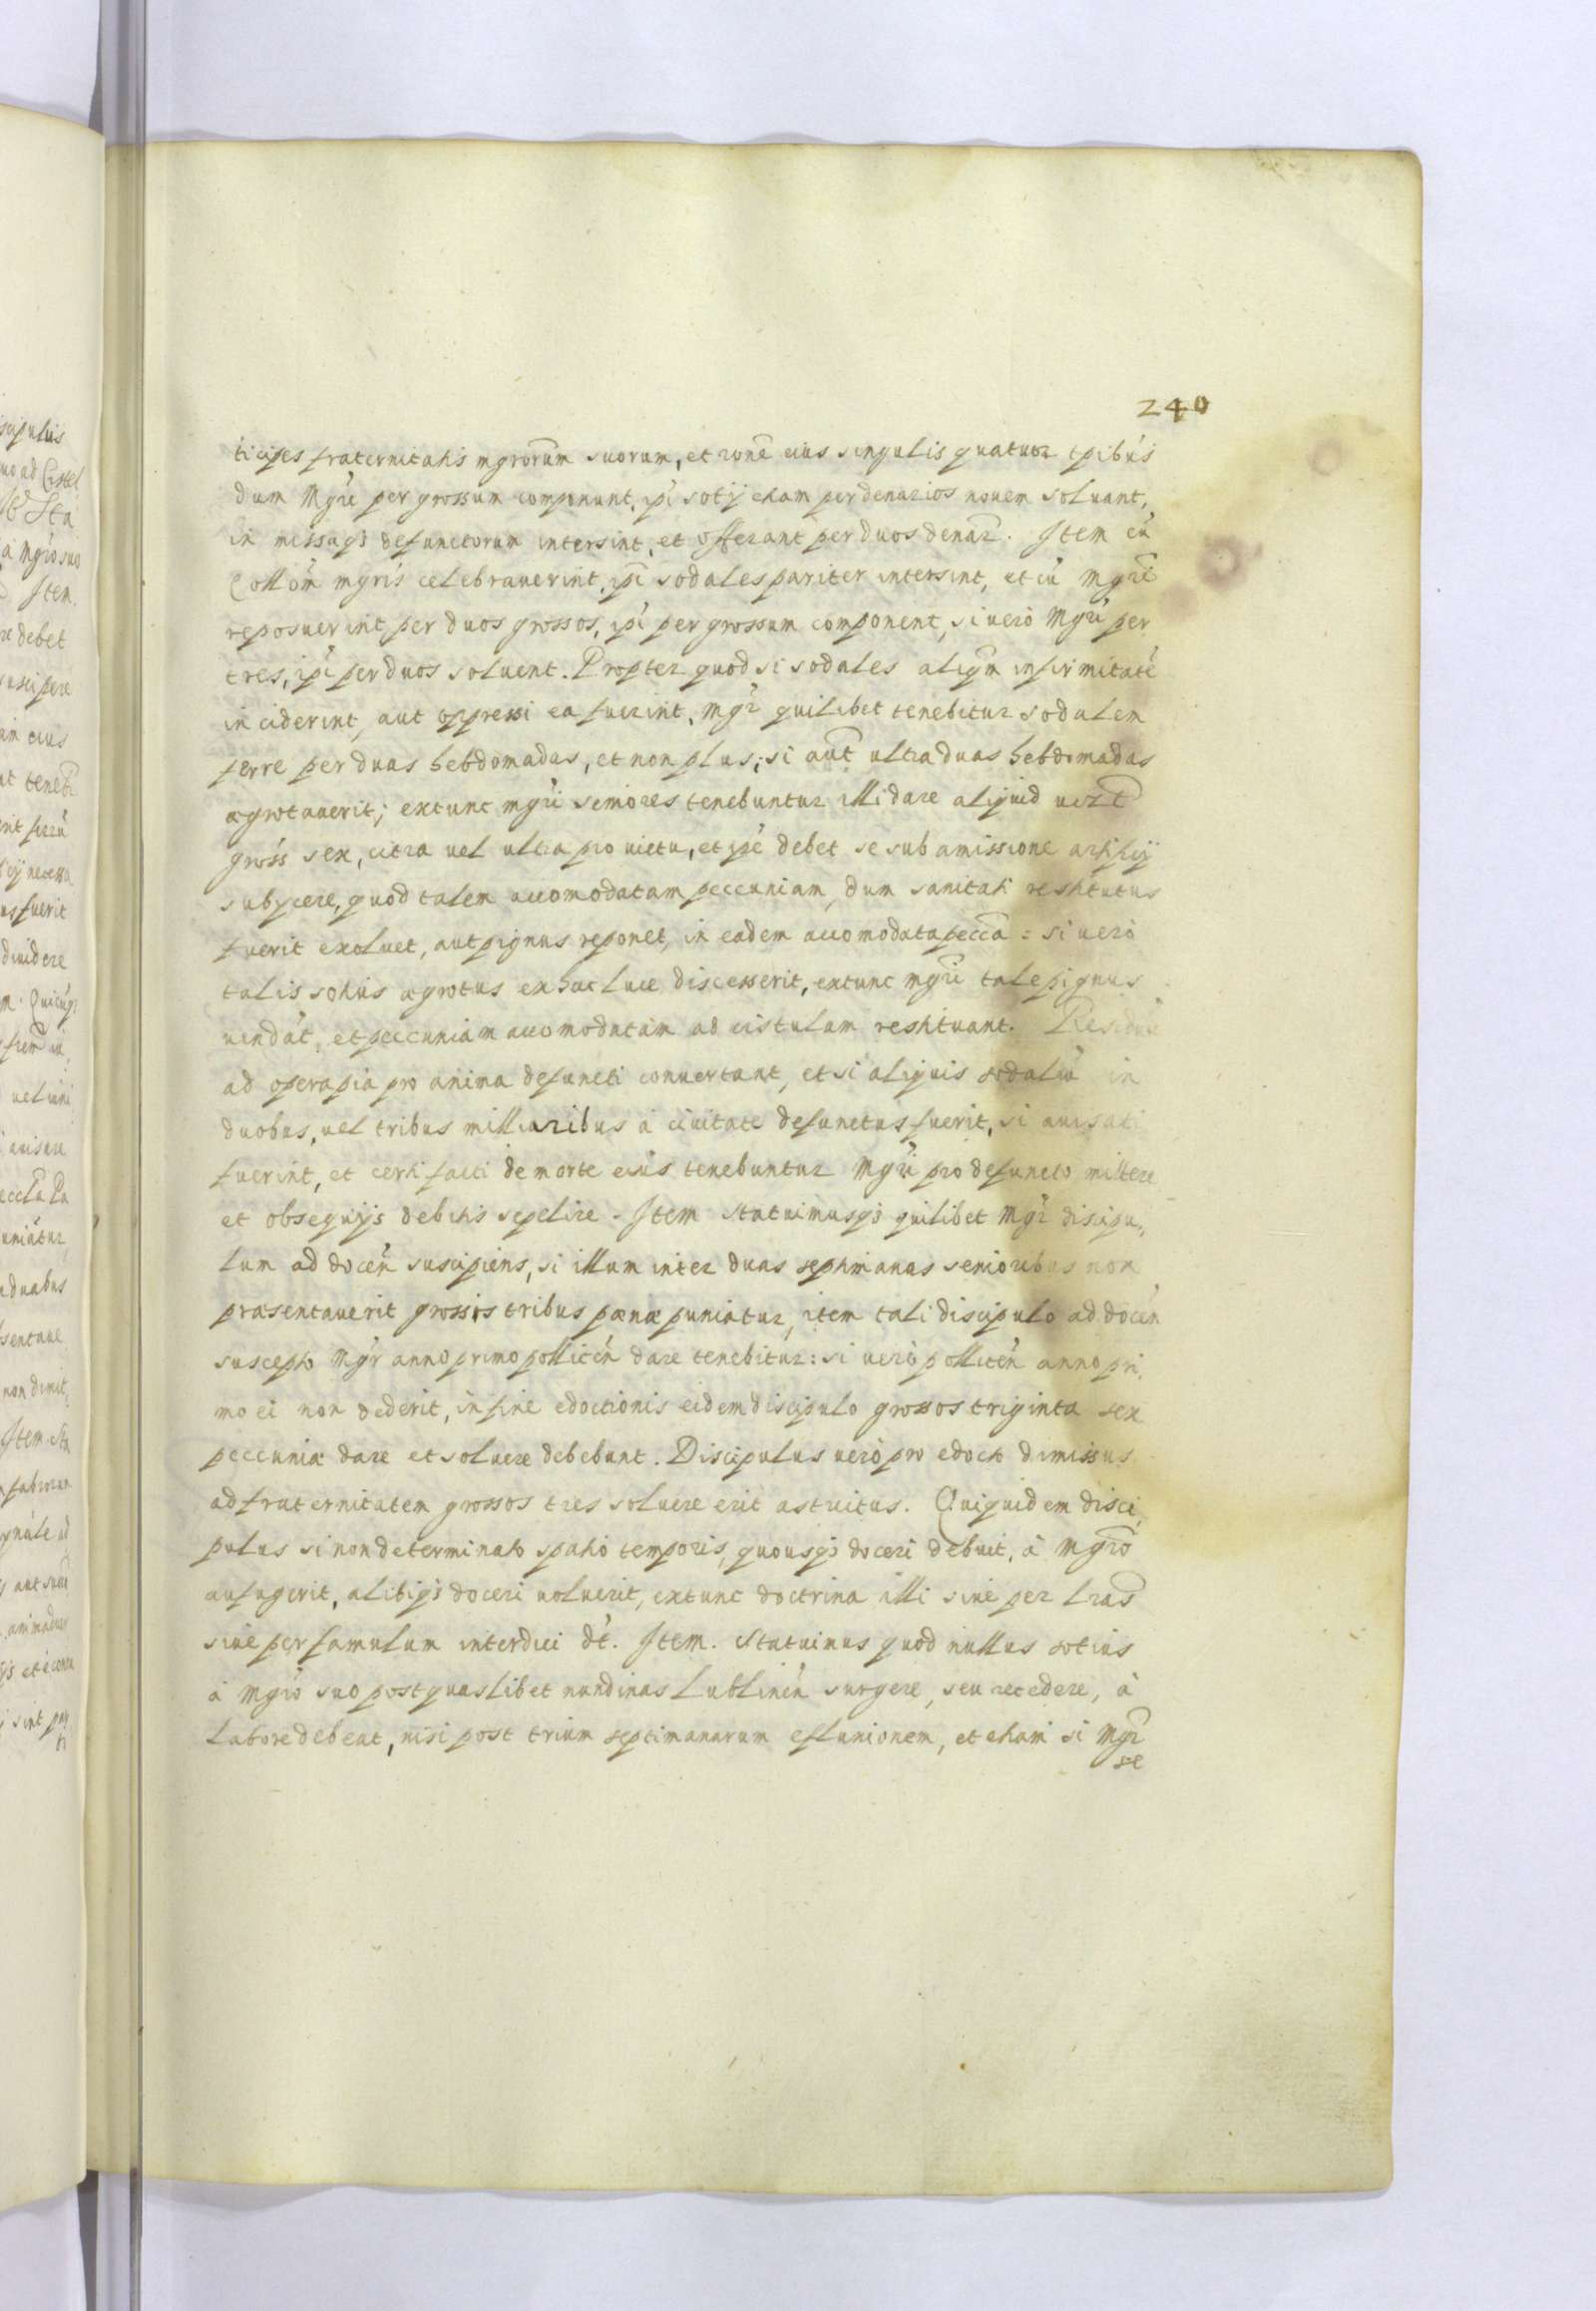 240
ticipes fraternitatis mgrorum suorum, et rõne eius singulis quatuor tpibus
dum Mgri per grossum componunt, ipi sotij etiam per denarios novem soluant,
in missaqз defunctorum intersint, et offerant per duos denar. Item cũ
Collõm mgris celebrauerint, ipi sodales pariter intersint, et cũ Mgri
reposuerint per duos grossos, ipi per grossum component, si uerò Mgri per
tres, ipi per duos soluent. Propter quod si sodales aliqm infirmitatẽ
inciderint, aut oppressi ea fuerint, Mgr quilibet tenebitur sodalem
ferre per duas hebdomadas, et non plus; si aut̃ ultra duas hebdomadas
ægrotauerit; extunc mgri seniores tenebuntur illi dare aliquid
gross sex, citra uel ultra pro uictu, et ipẽ debet se sub amissione artificij
subijcere, quod talem accomodatam peccuniam, dum sanitati restitutus
fuerit exoluet, aut pignus reponet, in eadem accomodata pecca: si uerò
talis sotius ægrotus ex hac luce discesserit, extunc mgri tale pignus
uendãt, et peccuniam accomodatam ad cistulam restituant. Residuũ
ad opera pia pro anima defuncti conuertant, et si aliquis sodaliũ in
duobus, uel tribus milliaribus à ciuitate defunctus fuerit, si auisati
fuerint, et certi facti de morte eius tenebuntur Mgri pro defuncto mittere
et obsequijs debitis sepelire. Item statuimusqз quilibet Mgr discipu,
lum ad docen̄ suscipiens, si illum inter duas septimanas senioribus non
præsentauerit grossis tribus pænæ puniatur, item tali discipulo ad docen̄
suscepto Mgr anno primo pollicen̄ dare tenebitur: si uerò pollicen̄ anno pri,
mo ei non dederit, in fine edoctionis eidem discipulo grossos triginta sex
peccuniæ dare et soluere debebunt. Discipulus uerò pro edocto dimissus
ad fraternitatem grossos tres soluere erit astrictus. Qui quidem disci,
pulus si non determinato spatio temporis, quousqз doceri debuit, à Mgro
aufugerit, alibiqз doceri uoluerit, extunc doctrina illi siue per lras
siue per famulum interdici dt. Item. Statuimus quod nullus sotius
à Mgro suo post quaslibet nundinas Lublinen̄ surgere, seu recedere, à
labore debeat, nisi post trium septimanarum efluxionem, et etiam si Mgr
se